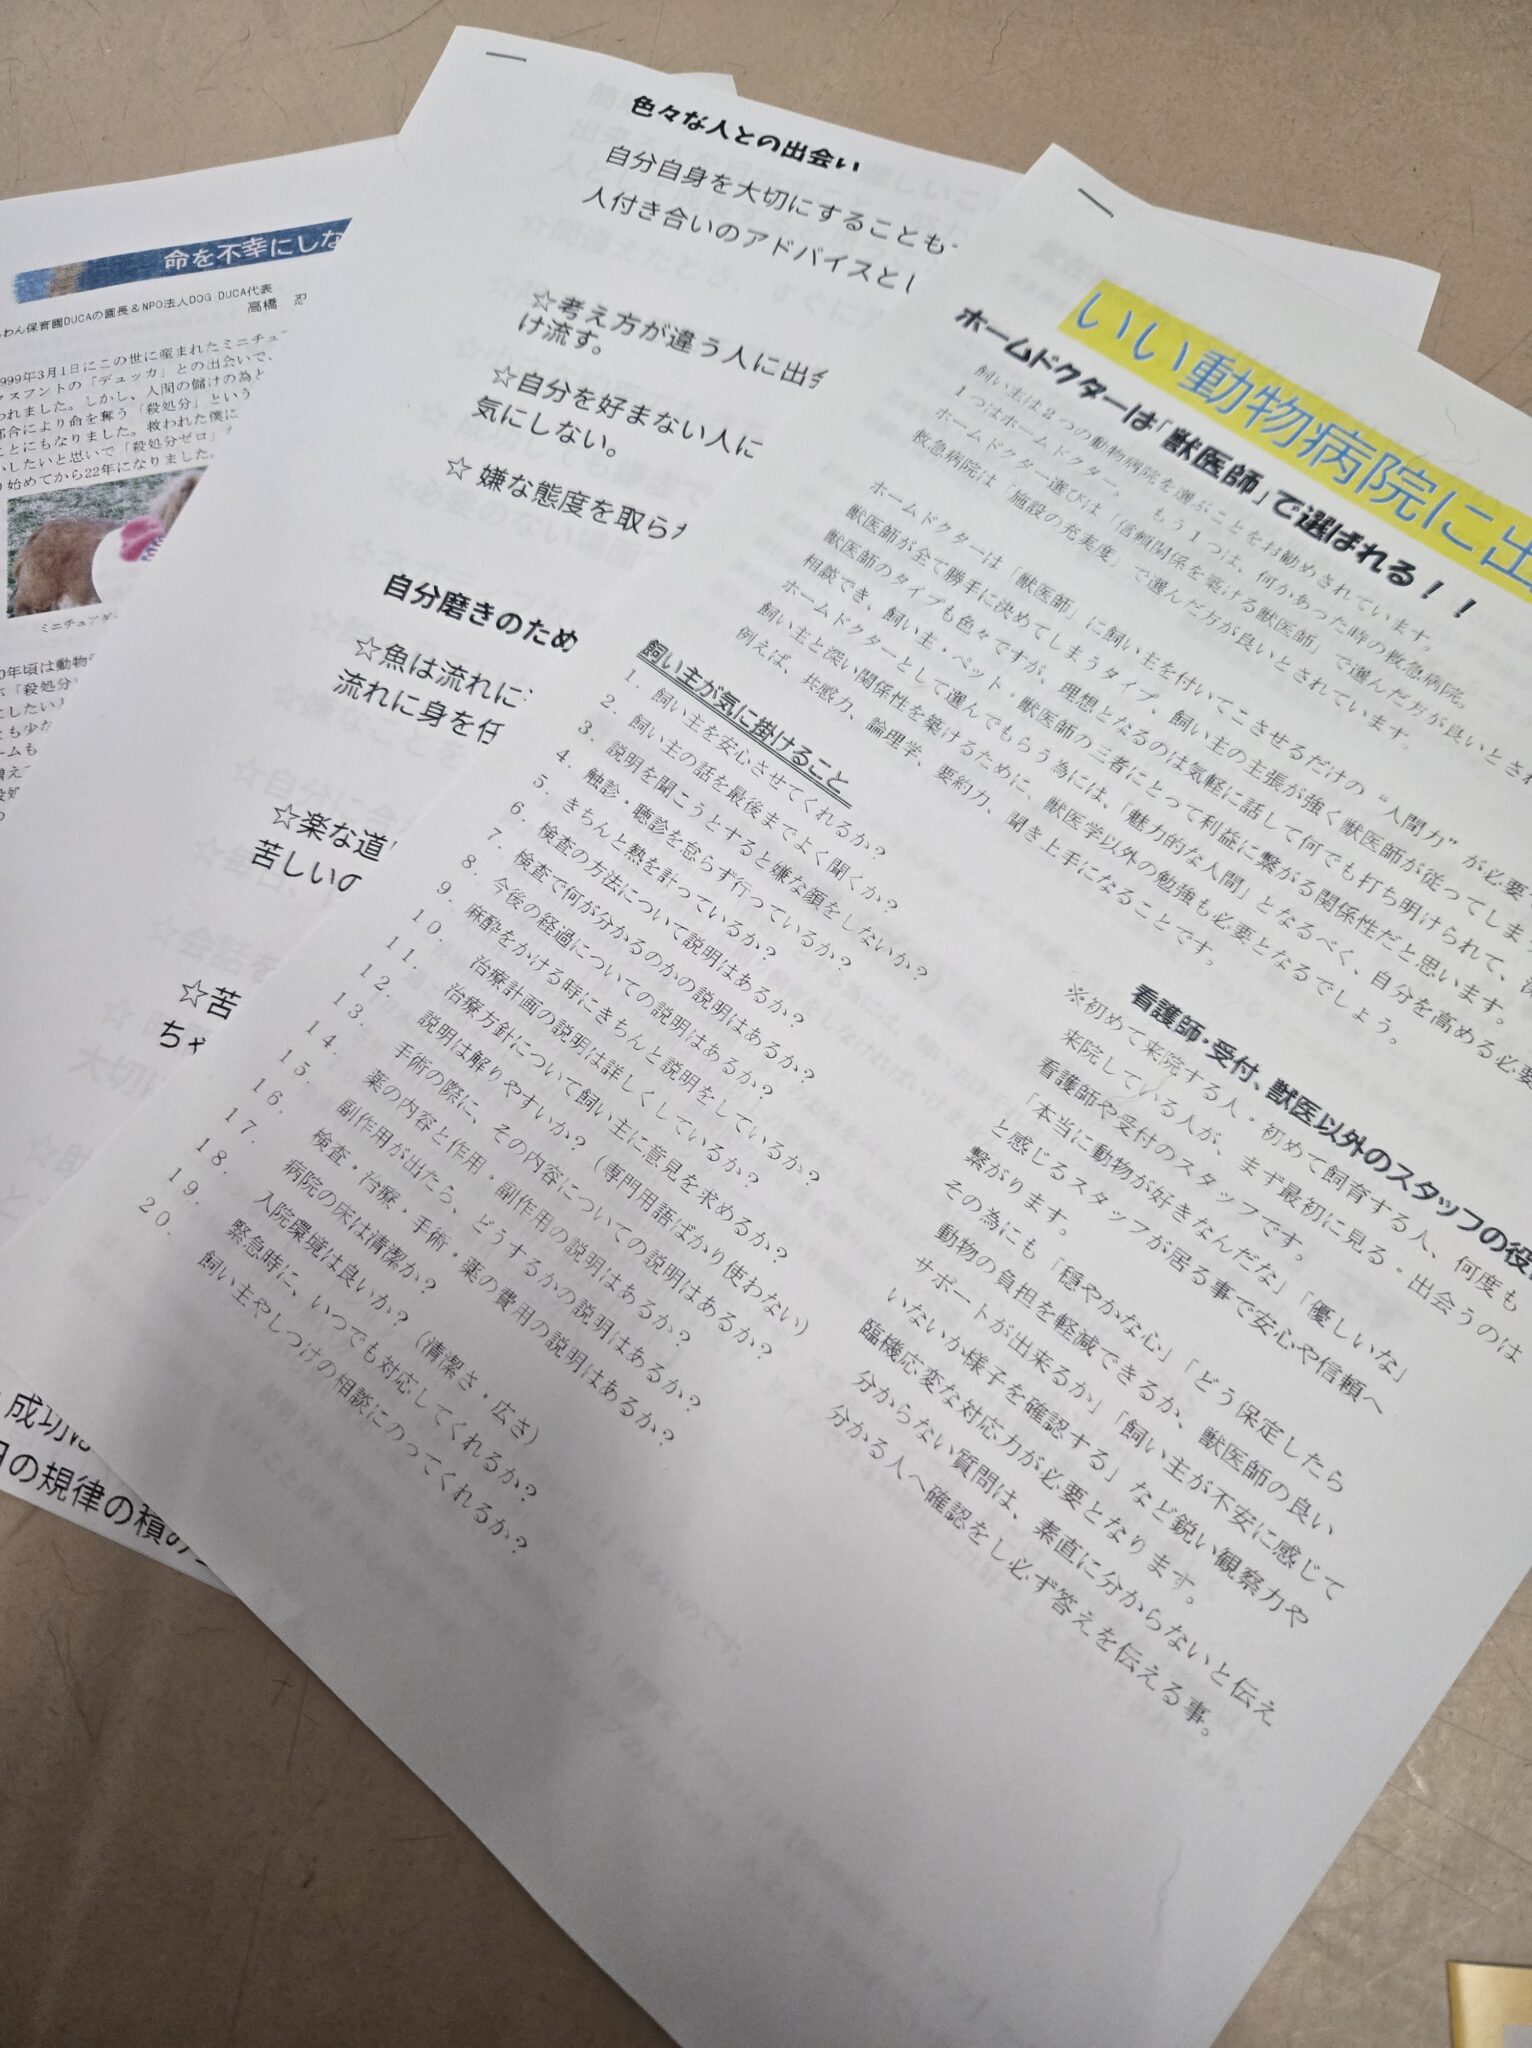 命を不幸にしな
わん保育園DUCAの園長＆NPO法人DOG DUCA代表
高橋
999年3月1日にこの世に産まれたミニチュ
クスフントの「デュッカ」との出会いで、
われました。しかし、人間の儲けの為と
都合により命を奪う「殺処分」という
ことにもなりました。救われた僕に
いしたいと思いで「殺処分ゼロ」
り始めてから22年になりました。
ミニチュアダ
0年頃は動物
「殺処分
としたい
とも少な
ームも
増え
成功は
日の規律の積み
色々な人との出会い
自分自身を大切にすることも
人付き合いのアドバイスとし
☆考え方が違う人に出会
け流す。
☆自分を好まない人に
気にしない。
☆ 嫌な態度を取られ
自分磨きのため
☆魚は流れに
流れに身を任
☆楽な道
苦しいの
☆苦
ちゃ
いい動物病院に出
ホームドクターは「獣医師」で選ばれる！！
飼い主は２つの動物病院を選ぶことをお勧めされています。
１つはホームドクター。 もう１つは、何かあった時の救急病院。
ホームドクター選びは「信頼関係を築ける獣医師」で選んだ方が良いとされ
救急病院は「施設の充実度」で選んだ方が良いとされています。
ホームドクターは「獣医師」に飼い主を付いてこさせるだけの“人間力”が必要
獣医師が全て勝手に決めてしまうタイプ、飼い主の主張が強く獣医師が従ってしまう
獣医師のタイプも色々ですが、理想となるのは気軽に話して何でも打ち明けられて、
相談でき、飼い主・ペット・獣医師の三者にとって利益に繋がる関係性だと思います。
ホームドクターとして選んでもらう為には、「魅力的な人間」となるべく、自分を高める必要
飼い主と深い関係性を築けるために、獣医学以外の勉強も必要となるでしょう。
例えば、共感力、論理学、要約力、聞き上手になることです。
飼い主が気に掛けること
1. 飼い主を安心させてくれるか？
2. 飼い主の話を最後までよく聞くか？
3. 説明を聞こうとすると嫌な顔をしないか？
4. 触診・聴診を怠らず行っているか？
5. きちんと熱を計っているか？
6. 検査の方法について説明はあるか？
7. 検査で何が分かるのかの説明はあるか？
8. 今後の経過についての説明はあるか？
9. 麻酔をかける時にきちんと説明をしているか？
10. 治療計画の説明は詳しくしているか？
11. 治療方針について飼い主に意見を求めるか？
12. 説明は解りやすいか？（専門用語ばかり使わない）
13. 手術の際に、その内容についての説明はあるか？
14. 薬の内容と作用・副作用の説明はあるか？
15. 副作用が出たら、どうするかの説明はあるか？
16. 検査・治療・手術・薬の費用の説明はあるか？
17. 病院の床は清潔か？
18. 入院環境は良いか？（清潔さ・広さ）
19. 緊急時に、いつでも対応してくれるか？
20. 飼い主やしつけの相談にのってくれるか？
看護師・受付、獣医以外のスタッフの役
※初めて来院する人・初めて飼育する人、何度も
来院している人が、まず最初に見る・出会うのは
看護師や受付のスタッフです。
「本当に動物が好きなんだな」「優しいな」
と感じるスタッフが居る事で安心や信頼へ
繋がります。
その為にも「穏やかな心」「どう保定したら
動物の負担を軽減できるか、獣医師の良い
サポートが出来るか」「飼い主が不安に感じて
いないか様子を確認する」など鋭い観察力や
臨機応変な対応力が必要となります。
分からない質問は、素直に分からないと伝え
分かる人へ確認をし必ず答えを伝える事。